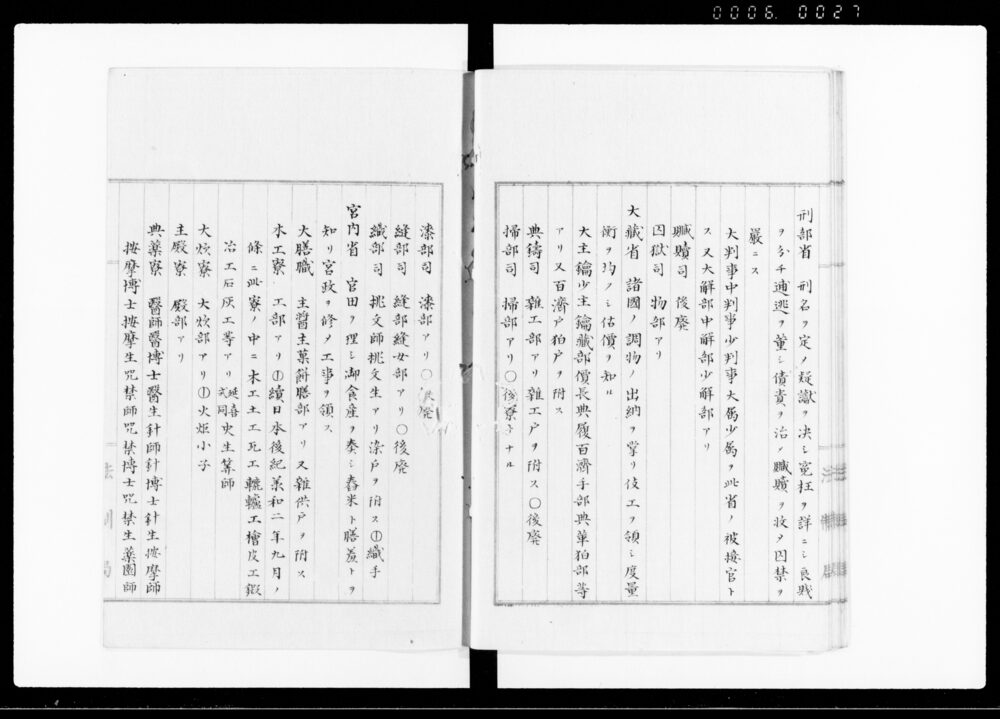 0006. 0027
刑部省 刑名ヲ定メ疑讞ヲ決シ寃枉ヲ詳ニシ良賎
ヲ分チ逋逃ヲ董シ債責ヲ治メ贓贖ヲ收メ囚禁ヲ
嚴ニス
大判事中判事少判事大属少属ヲ此省ノ被接官ト
ス又大解部中解部少解部アリ
贓贖司 後廢
囚獄司 物部アリ
大藏省 諸國ノ調物ノ出納ヲ掌リ伎工ヲ領シ度量
衡ヲ均クシ估價ヲ知ル
大主鑰少主鑰藏部價長典履百濟手部典革狛部等
アリ又百濟戸狛戸ヲ附ス
典鑄司 雜工部アリ雜工戸ヲ附ス〇後廢
掃部司 掃部アリ〇後寮トナル
漆部司 漆部アリ〇後廢
縫部司 縫部縫女部アリ〇後廢
織部司 挑文師挑文生アリ染戸ヲ附ス①織手
宮内省 官田ヲ理シ御食産ヲ奏シ舂米ト膳羞トヲ
知リ宮政ヲ修メ工事ヲ領ス
大膳職 主醤主菓餅膳部アリ又雜供戸ヲ附ス
木工寮 工部アリ①續日本後紀承和二年九月ノ
條ニ此寮ノ中ニ木工土工瓦工轆轤工檜皮工鍛
冶工石灰工等アリ延喜式同史生算師
大炊寮 大炊部アリ①火炬小子
主殿寮 殿部アリ
典藥寮 醫師醫博士醫生針師針博士針生按摩師
按摩博士按摩生咒禁師咒禁博士咒禁生藥園師